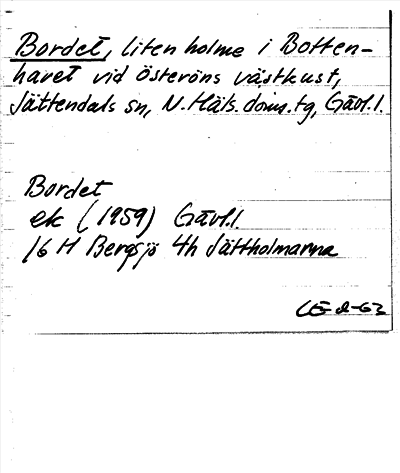 Bordet, liten holme i Botten-
havet vid Österöns västkust,
Jättendals sn, N. Häls. doms.tg, Gävl.l.
Bordet
ek (1959) Gävl.l.
16 H Bergsjö 4h Jättholmarna